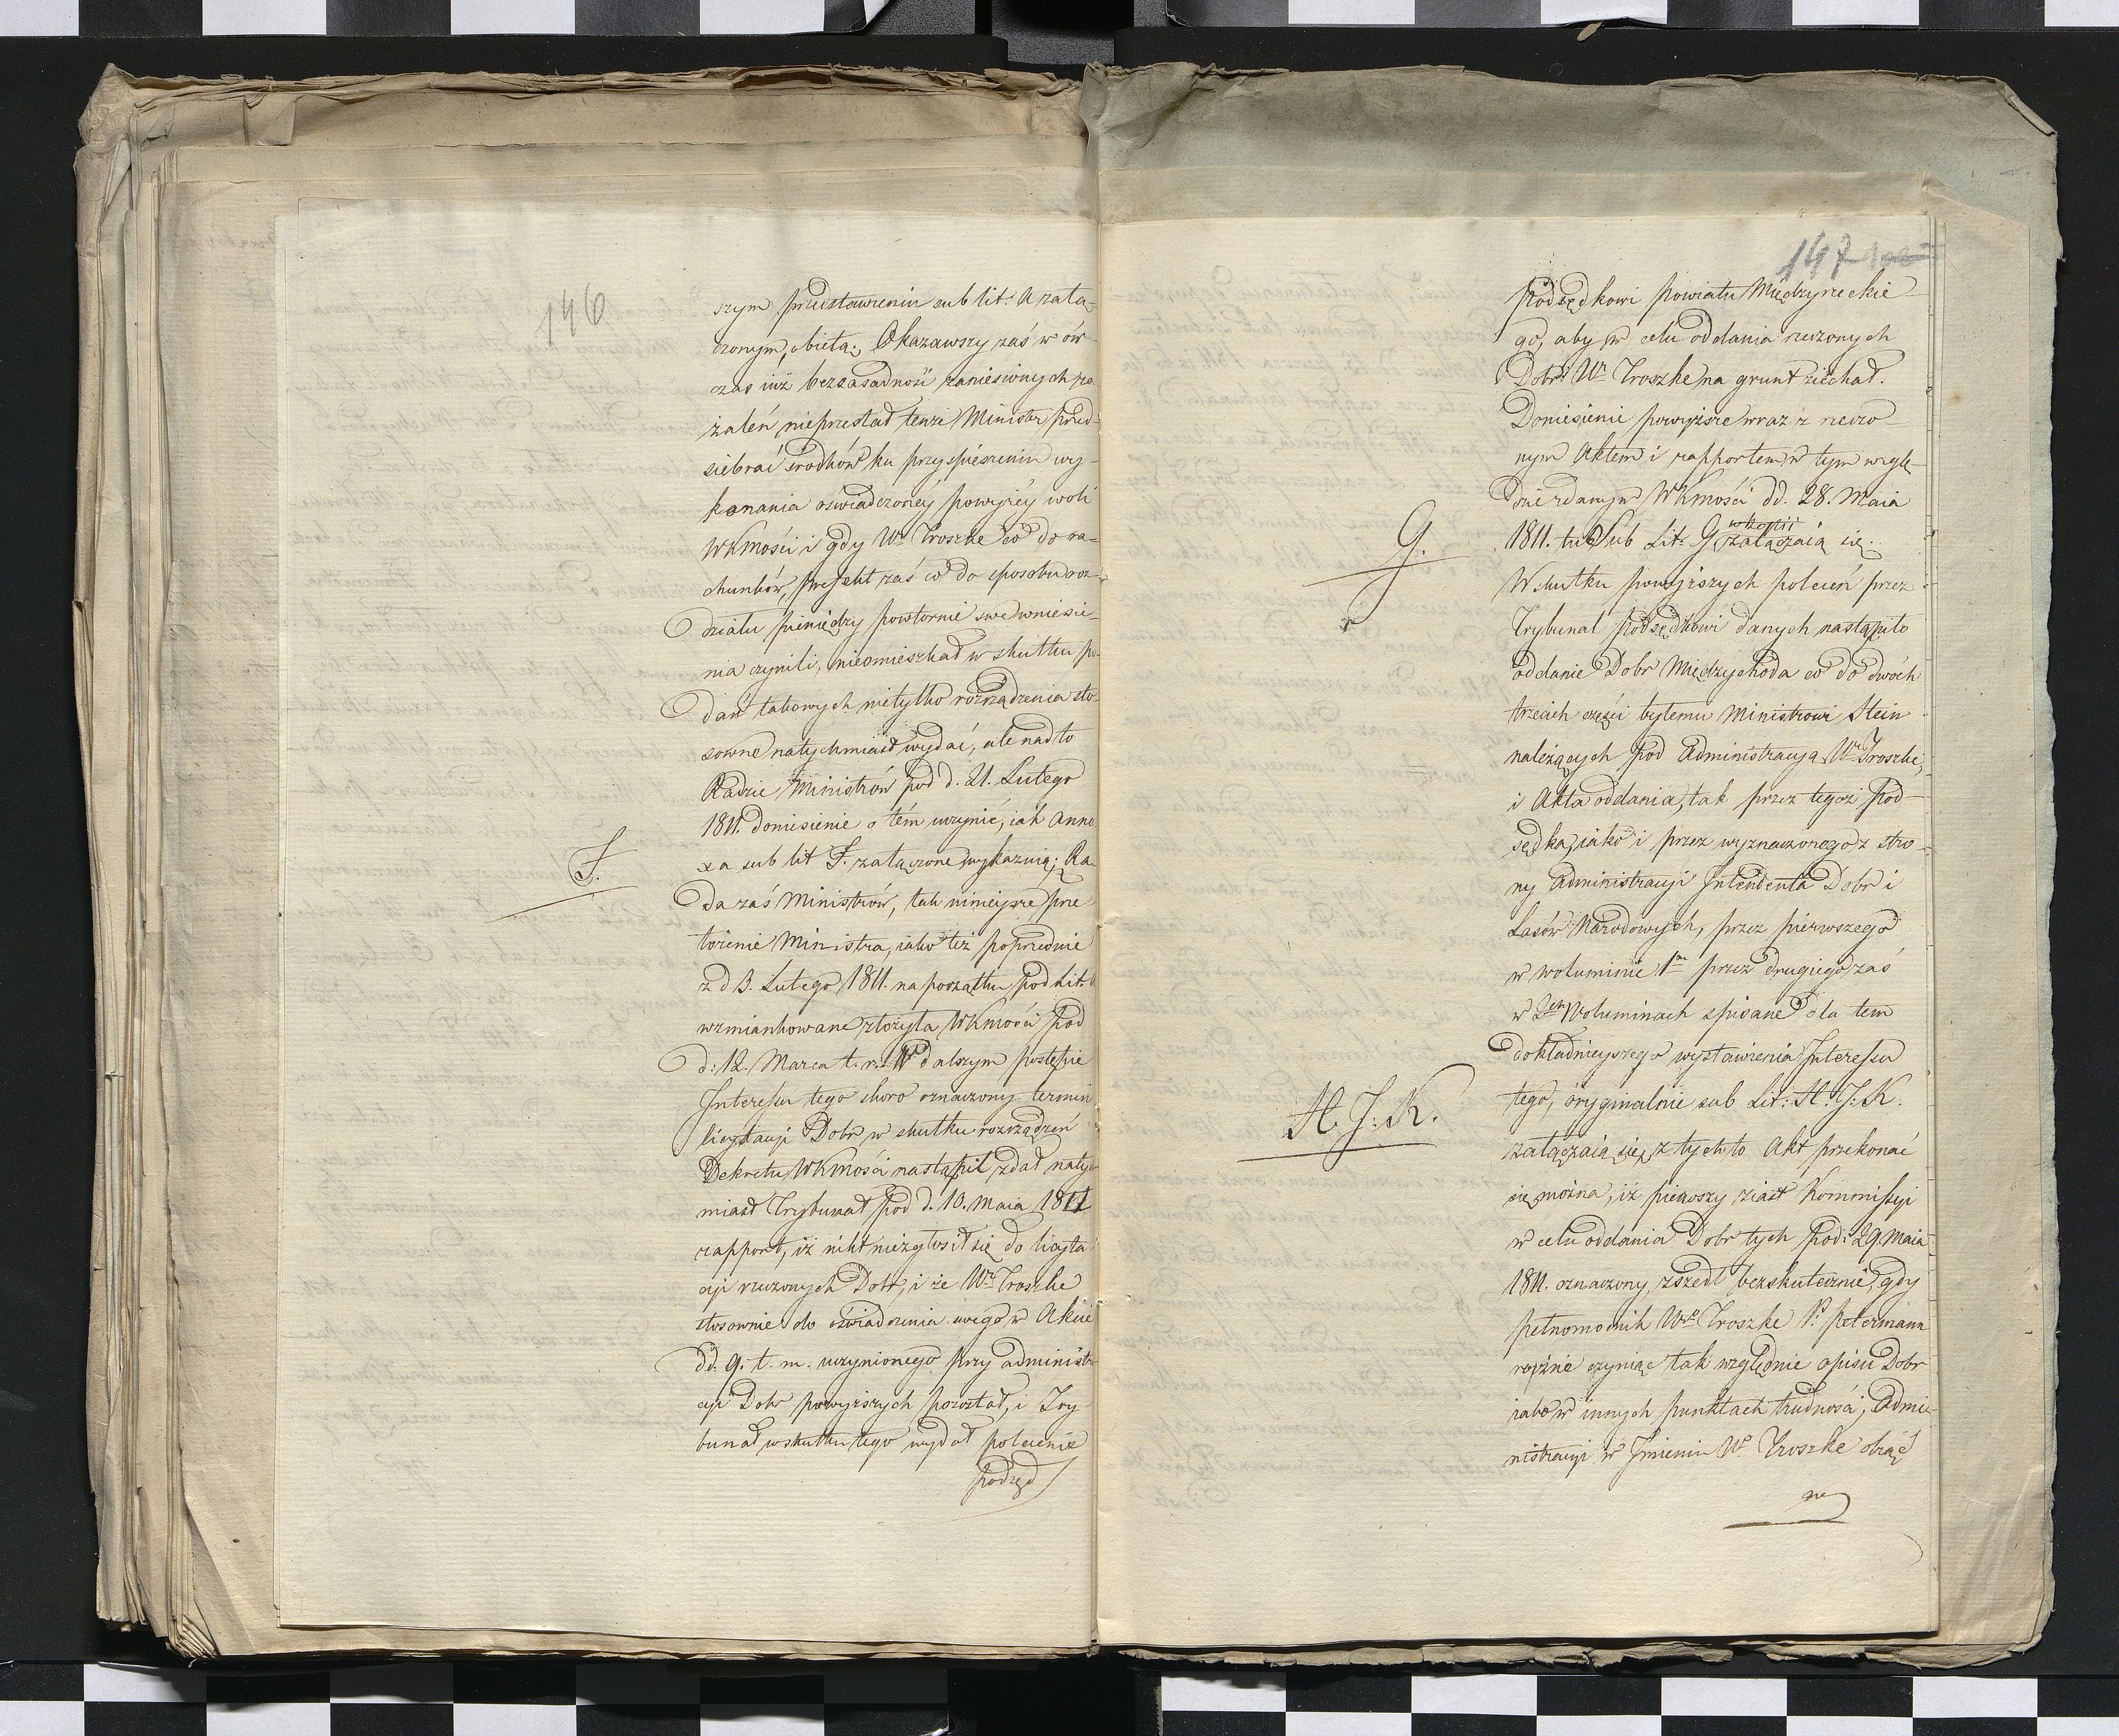 146
szym przedstawieniu sub lit: A załą-
czonym, obieta; Okazawszy zaś w ów-
czas iuż bezzasadność zaniesionych za-
żaleń nieprzestał tenże Minister przed-
siebrać środków ku przyspieszeniu wy-
konania oświadczoney powyżéy woli
WKmości i gdy Wny Troszke co do ra-
chunków, Prefekt zaś co do sposobu roz-
działu pieniędzy powtórnie swe wniesie-
nia czynili, nieomieszkał w skutku po-
dań takowych nietylko rozrządzenia sto-
sowne natychmiast wydać, ale nadto
Radzie Ministrów pod d. 21. Lutego
1811. doniesienie o tém uczynić, iak Anne-
F.
xa sub lit F. załączone wykazuią; Ra-
da zaś Ministrów, tak ninieysze prze-
łożenie Ministra, iako też poprzednie
z d 3. Lutego 1811. na początku pod Lit.
wzmiankowane złożyła WKmości pod
d: 12. Marca t. r. W dalszym postępie
Interessu tego skoro oznaczony termin
licytacji Dobr w skutku rozrządzeń
Dekretu WKmości nastąpił, zdał natych-
miast Trybunał pod d. 10. Maia 1811
rapport, iż nikt niezgłosił się do licyta-
cji rzeczonych Dobr, i że Wny Troszke
stosownie do oświadczenia swego w Akcie
dd. 9. t. m. uczynionego przy administra-
cji Dobr powyższych pozostał, i Try-
bunał w skutku tego wydał polecenie
Podsęd
147
Podsędkowi Powiatu Międzyrzeckie-
go, aby w celu oddania rzeczonych
Dobr Wu Troszke na grunt ziechał.
Doniesienie powyższe wraz z rzeczo-
nym Aktem i rapportem w tym wzglę-
dzie zdanym WKmości dd. 28. Maia
w kopii
G.
1811. tu Sub Lit: G załączaią się.
W skutku powyższych poleceń przez
Trybunał Podsędkowi danych nastąpiło
oddanie Dobr Międzychoda co do dwóch
trzecich części byłemu Ministrowi Stein
należących pod Administracją Wo Troszke,
i Akta oddania, tak przez tegoż Pod-
sędka, iako i przez wyznaczonego z stro-
ny Administracji Intendenta Dobr i
Lasów Narodowych, przez pierwszego
w woluminie 1m przez drugiego zaś
w 2ch Woluminach spisane dla tem
dokładnieyszego wystawienia Interessu
H. J: K.
tego, oryginalnie sub Lit: H. J: K.
załączaią się, z tych to Akt przekonać
się można, iż pierwszy ziazd Kommissyi
w celu oddania Dobr tych pod: 29. Maia
1811. oznaczony, zszedł bezskutecznie, gdy
pełnomocnik Wo Troszke P. Petermann
rożne czyniąc tak względnie opisu Dobr
iako w innych punktach trudności, Admi-
nistracyi w Imieniu Wo Troszke objąć
nie